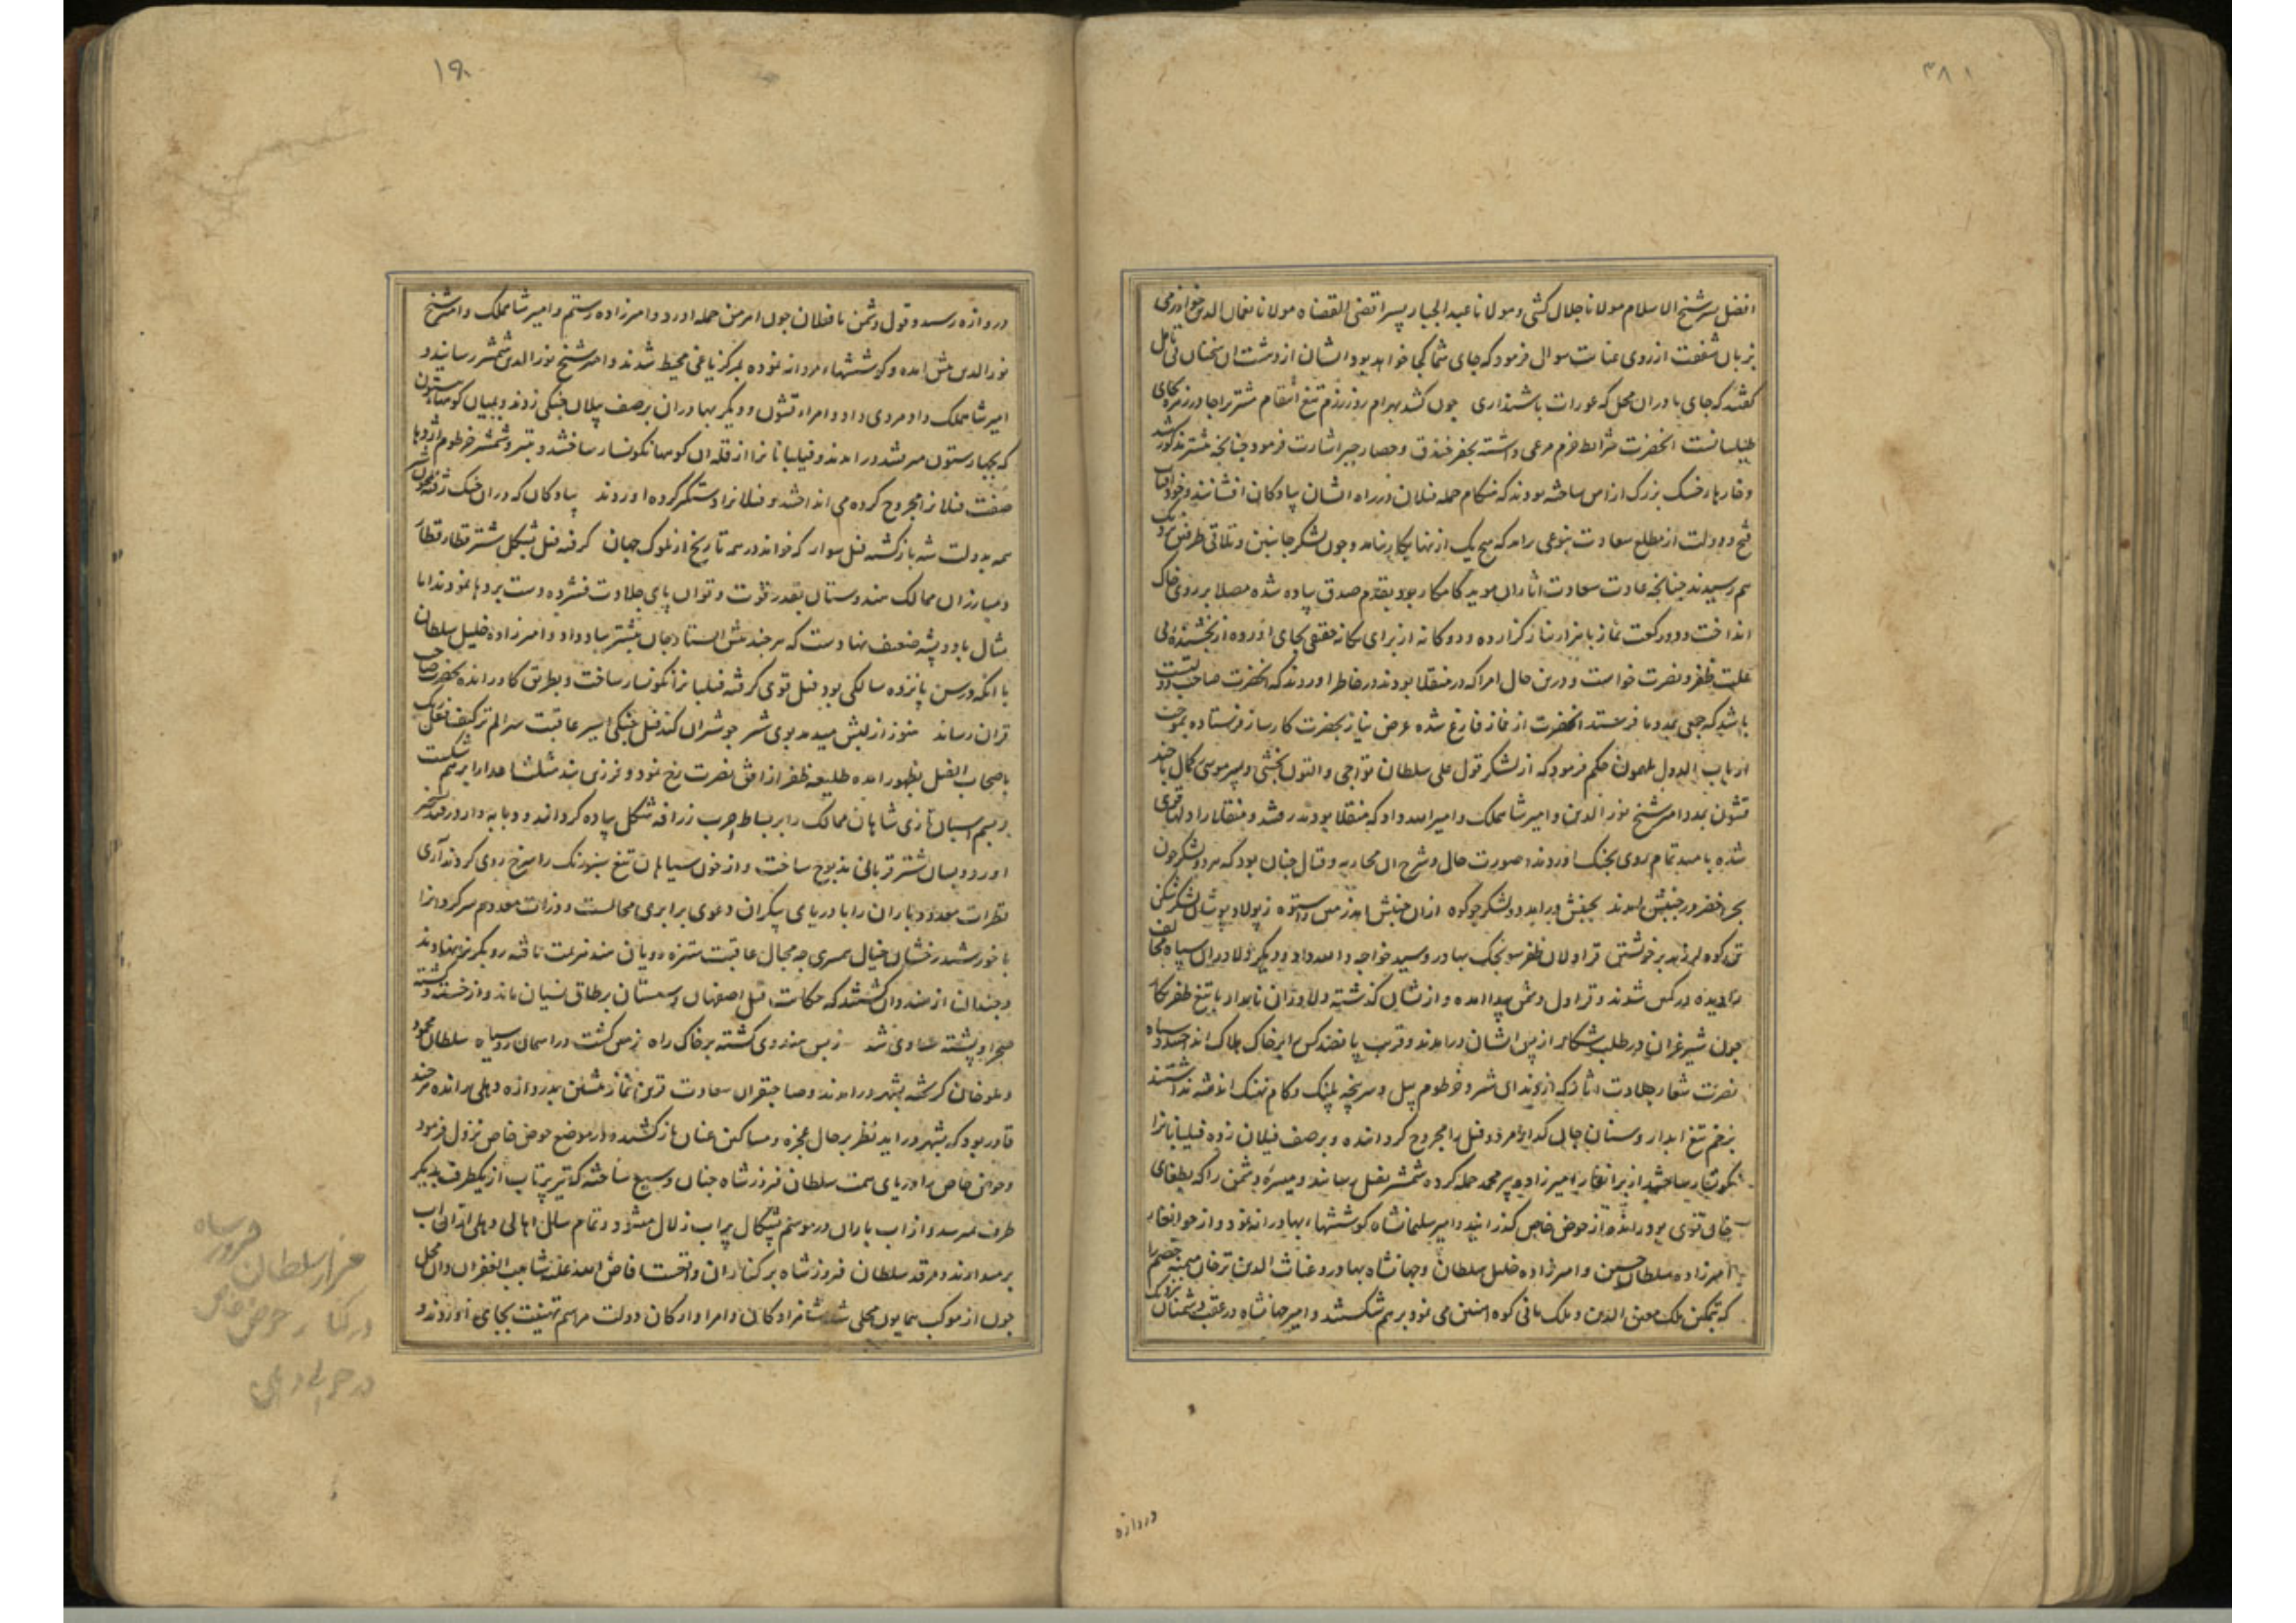 ۳۸۱
افضل پسر شیخ الاسلام مولانا جلال کشی و مولانا عبد الجبار پسر اقضی القضاه مولانا نعمان الدین خوارزمی
بزبان شفقت از روی عنایت سوال فرمود که جای شما کجا خواهد بود ایشان از دهشت ان سخنان بی تامل
گفتند که جای ما در ان محل که عورات باشند اری چون کشد بهرام روز رزم تیغ انتقام مشتری را جا در زمره
طیلسانست انحضرت شرایط حزم مرعی داشته بحفر خندق و حصار چپر اشارت فرمود چنانچه پیشتر مذکور شد
و خارها خسک بزرگ از اهن ساخته بودند که هنگام حمله فیلان در راه ایشان پیادکان افشانند و چون افتاب
فتح و دولت از مطلع سعادت بنوعی برامد که هیچ یک از نها بکار نیامد و چون لشکر جانبین و تلاقی طرفین نزدیک
هم رسیدند چنانچه عادت سعادت اثار ان موید کامکار بود بقدم صدق پیاده شده مصلا بر روی خاک
انداخت و دو رکعت نماز با هزار نیاز گزارده و دوکانه از برای یکانه حقیقی بجای اورده از بخشنده بی
علت ظفر و نصرت خواست و درین حال امرا که در منقلا بودند در خاطر اوردند که انحضرت صاحب دولت
باشد که جمعی بمدد ما فرستد انحضرت از نماز فارغ شده عرض نیاز بحضرت کارساز فرستاده بموجب
ارباب الدول ملهمون حکم فرمود که از لشکر قول علی سلطان تواجی و التون بخشی و پسر موسی کمال با چند
قشون بمدد امیر شیخ نور الدین و امیر شاهملک و امیر الله داد که منقلا بودند رفتند و منقلا را دلها قوی
شده بامید تمام روی بجنک اوردند و صورت حال و شرح ان محاربه و قتال چنان بود که هر دو لشکر چون
بحر اخضر در جنبش امدند بجنبش درامد دو لشکر چو کوه ازان جنبش امد زمین در ستوه ز پولاد پوشان لشکر شکن
تن کوه لرزید بر خویشتن قراولان ظفر سونجک بهادر و سید خواجه و الله داد و دیکر دلاوران سپاه مخالف
را دیده در کمین شدند و قراول دشمن پیدا امده و از نشان گذشته دلاوران نامدار با تیغ ظفر نگار
چون شیر غران در طلب شکار از پس ایشان درامدند و قریب پانصد کس را بر خاک هلاک انداختند و سپاه
نصرت شعار جلادت اثار که از دندان شیر و خرطوم پیل و سرپنجه پلنک و کام نهنک اندیشه نداشتند
بزخم تیغ ابدار و سنان جان کداز مرد و فیل را مجروح کردانده و بر صف فیلان زده فیلبانانرا
نکونسار ساختند از برانغار امیرزاده پیر محمد حمله کرده شمشیر بفیل رسانید و میسره دشمن را که بطغای
خان قوی بود رانده از حوض خاص کذرانید و امیر سلیمانشاه کوششها بهادرانه نمود و از جوانغار
امیرزاده سلطان حسین و امیرزاده خلیل سلطان و جهانشاه بهادر و غیاث الدین ترخان میمنه خصم را
که بتمکین ملک معین الدین و ملک هانی کوه اهنین می نمود بر هم شکستند و امیر جهانشاه در عقب دشمنان نزدیک
دروازه
۱۹۰
دروازه رسید و قول دشمن با فیلان چون اهرمن حمله اورد و امیرزاده رستم و امیر شاهملک و امیر شیخ
نور الدین پیش امده و کوششهاء مردانه نموده بمرکز یاغی محیط شدند و امیر شیخ نور الدین شمشیر رسانید و
امیر شاهملک داد مردی داد و امراء قشون و دیگر بهادران بر صف پیلان جنکی زدند و بمیان کوهها بیستون
که بچهار ستون میرفتند درامدند و فیلبانانرا از قله ان کوهها نکونسار ساختند و بتیر و شمشیر خرطوم اژدها
صفت فیلانرا مجروح کرده می انداختند و فیلانرا دستگیر کرده اوردند پیادکان که دران جنک
همه بدولت شه باز کشته فیل سوار که خواند در همه تاریخ از ملوک جهان کرفته فیل بشکل شتر قطار قطار
و مبارزان ممالک هندوستان بقدر قوت و توان پای جلادت فشرده دست بردها نمودند اما
مثال باد و پشه ضعیف نهادست که هر چند پیش ایستاد جان پیشتر بباد داد و امیرزاده خلیل سلطان
با انکه در سن پانزده سالکی بود فیل قوی کرفته فیلبانرا نکونسار ساخت و بطریق کاو رانده بحضرت صاحب
قران رساند هنوز از لبش میدمد بوی شیر چو شیران کند فیل جنکی اسیر عاقبت سر الم تر کیف فعل ربک
باصحاب الفیل بظهور امده طلیعه ظفر از افق نصرت رخ نمود و فرزین بند شکست
و بسم اسبان تازی شاهان ممالک را بر بساط حرب زرافه شکل پیاده کرداند و دبابه وار در قید تسخیر
اورد و بسان شتر قربانی مذبوح ساخت و از خون سیاهان تیغ سبزرنک را سرخ روی کردند آری
قطرات معدود باران را با دریای بیکران دعوی برابری محالست و ذرات معدوم سرگردانرا
با خورشید رخشان خیال همسری چه مجال عاقبت ستیزه رویان هند هزیمت تافته رو بگریز نهادند
و چندان از هندوان کشتند که حکایت قتل اصفهان و سیستان بر طاق نسیان ماند و از خسته و کشته
صحرا و پشته مساوی شد زبس هندوی کشته بر خاک راه زمین کشت در اسمان رو سیاه سلطان محمود
و ملو خان کریخته بشهر درامدند و صاحبقران سعادت قرین نماز پیشین بدروازه دهلی رانده هر چند
قادر بود که بشهر دراید نظر بر حال عجزه و مساکین عنان باز کشیده در موضع حوض خاص نزول فرمود
و حوض خاص دریای همت سلطان فیروز شاه چنان وسیع ساخته که تیر پرتاب از یکطرف بدیگر
طرف نمیرسد و از اب باران در موسم پشکال پر اب زلال میشود و تمام سال اهالی دهلی ازان اب
برمیدارند و مرقد سلطان فیروز شاه بر کنار ان واقعست افاض الله علیه شابیب الغفران و ان محل
چون از موکب همایون محلی شد شاهزادکان و امرا و ارکان دولت مراسم تهنیت بجای اوردند و
مزار سلطان فیروز شاه
در کنار حوض خاص
در حوالی دهلی